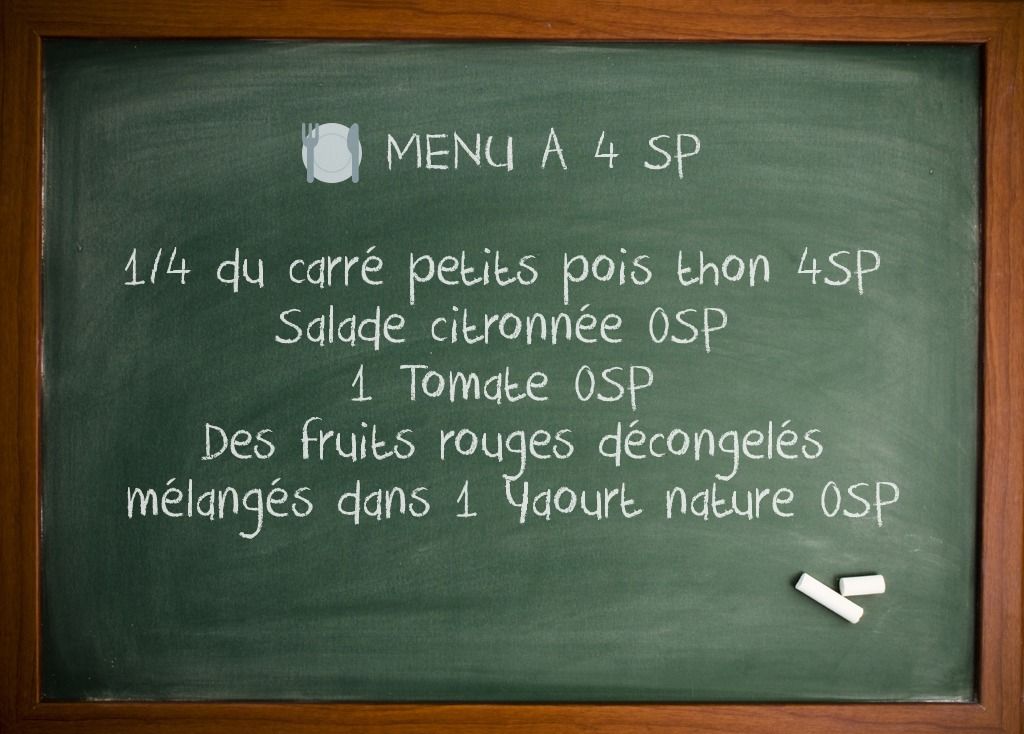 MENU A 4 SP
1/4 du carré petits pois thon 4SP
Salade citronnée 0SP
1 Tomate 0SP
Des fruits rouges décongelés
mélangés dans 1 Yaourt nature 0SP